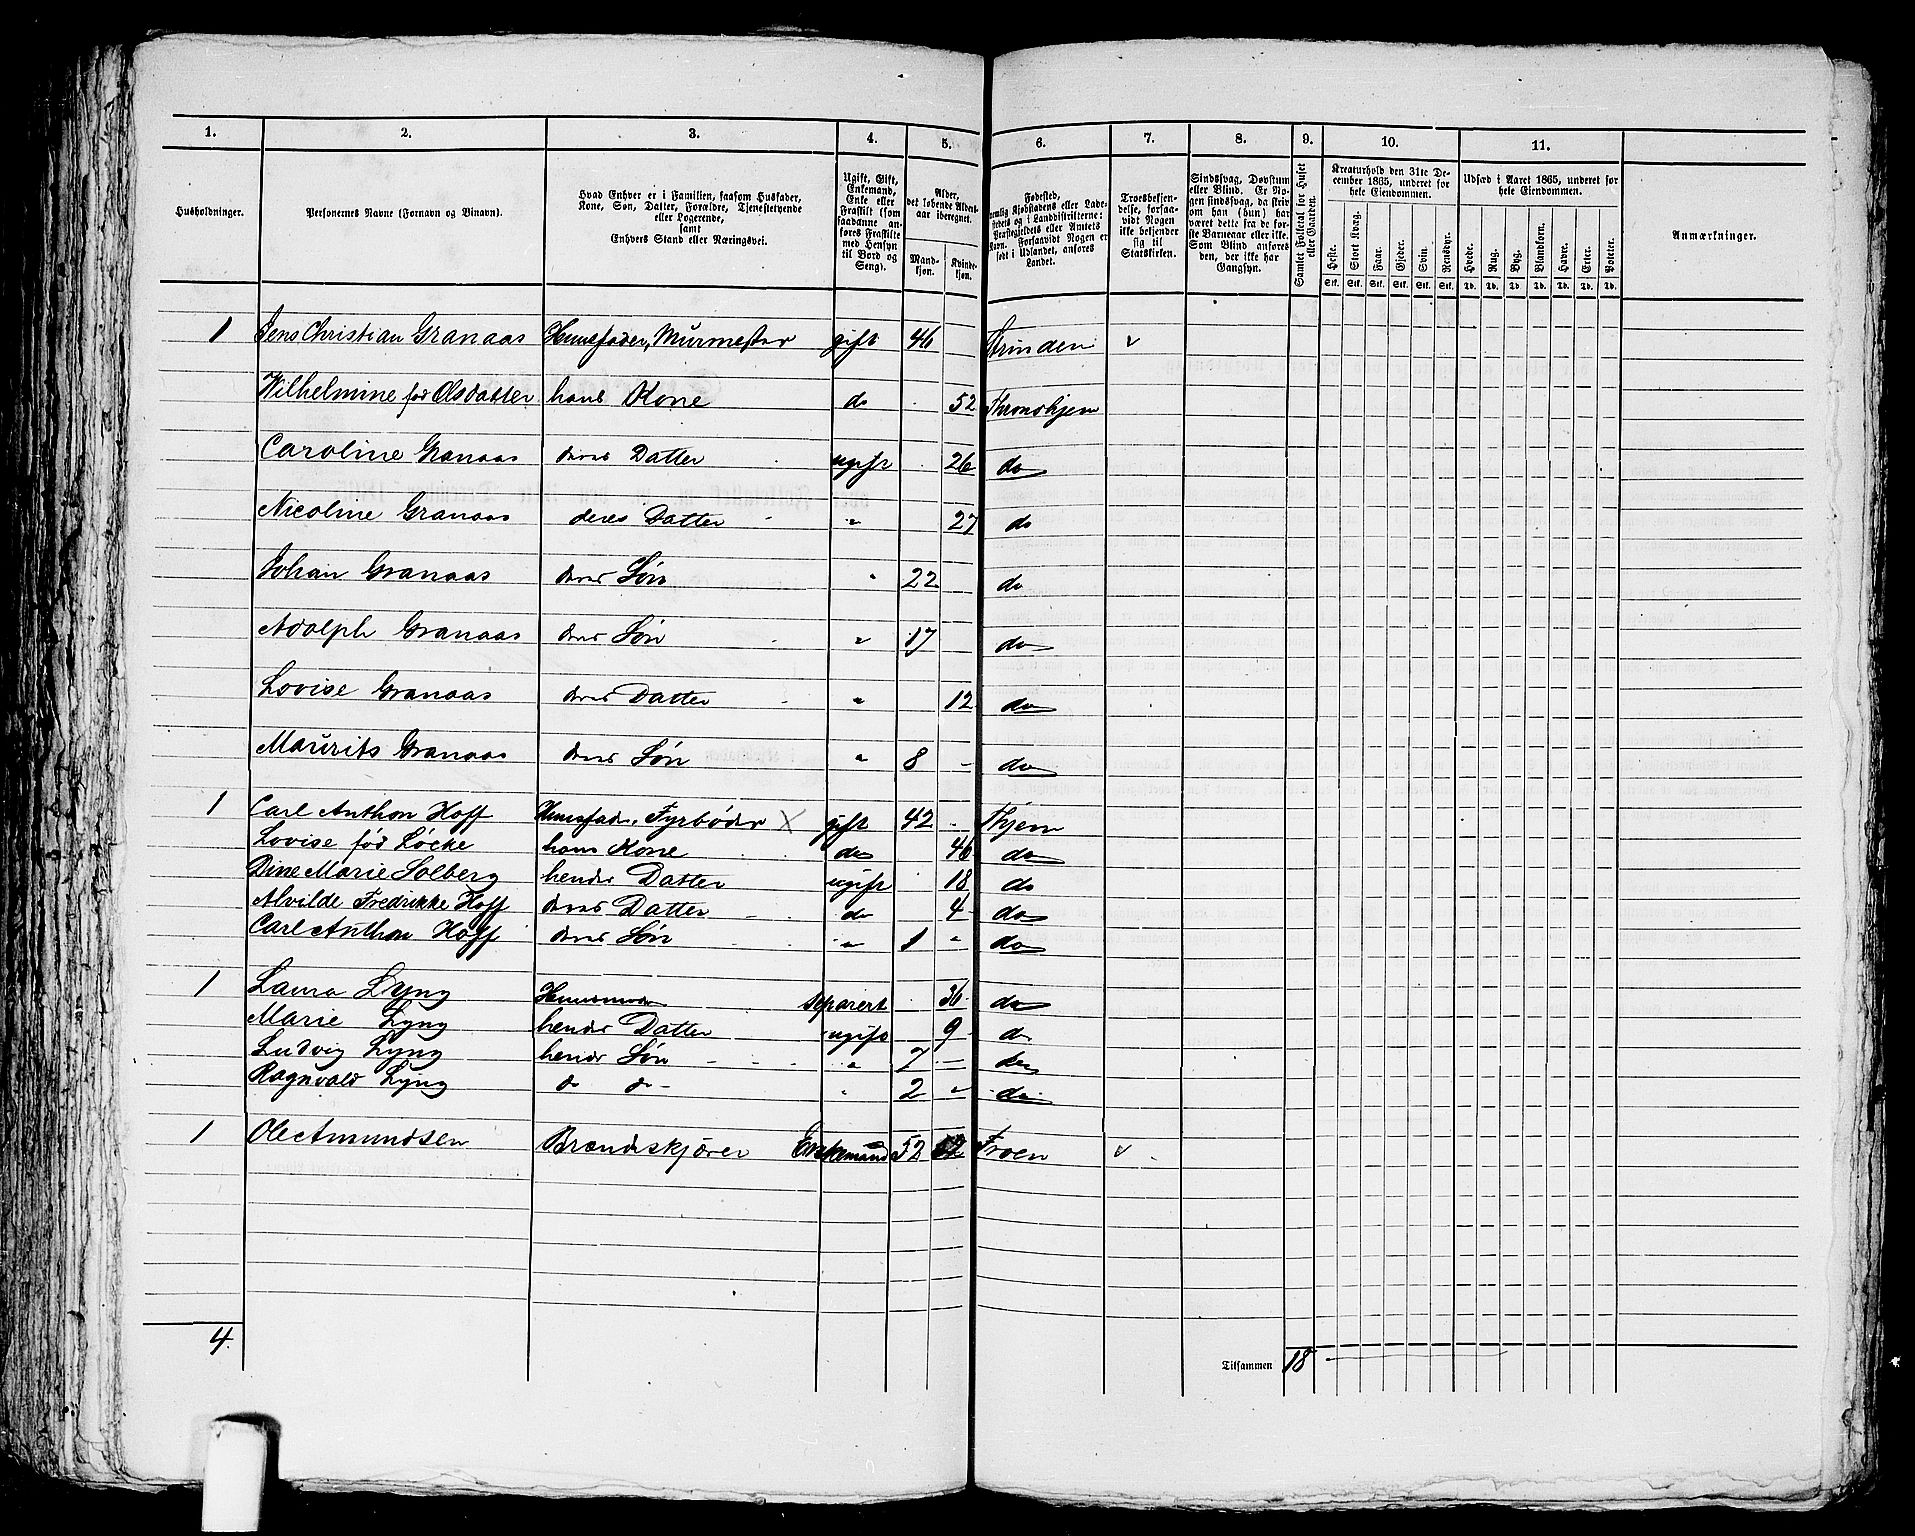 1. 2. 3. 4. 5. 6. 7. 8. 9. 10. 11.
Husholdninger.
Personernes Navne (Fornavn og Tilnavn).
Hvad Enhver er i Familien, saasom Husfader,
Kone, Søn, Datter, Forældre, Tjenestetyende
eller Logerende,
samt
Enhvers Stand eller Næringsvei.
Ugift, Gift,
Enkemand,
Enke eller
Fraskilt (som
saadanne an-
føres Fraskilte
med Hensyn
til Bord og
Seng).
Alder,
det løbende Alders-
aar iberegnet.
Mand-
kjøn.
Kvinde-
kjøn.
Fødested,
nemlig Kjøbstadens eller Lade-
stedets og i Landdistrikterne:
Præstegjeldets eller Amtets
Navn. Forsaavidt Nogen er
født i Udlandet, anføres
Landet.
Troesbekjen-
delse, forsaa-
vidt Nogen
ikke bekjender
sig til
Statskirken.
Sindssvag, Døvstum
eller Blind. Er No-
gen sindssvag, da skriv
om han (hun) har
været dette fra de før-
ste Barneaar eller ikke.
Som Blind anføres
den, der ikke har
Gangsyn.
Samlet Folketal for Huset
eller Gaarden.
Kreaturhold den 31te De-
cember 1865, underet for
hele Eiendommen.
Heste. Stort Kvæg. Faar. Gjeder. Svin. Rensdyr.
Stk. Stk. Stk. Stk. Stk. Stk.
Udsæd i Aaret 1865, underet for
hele Eiendommen.
Hvede. Rug. Byg. Blandkorn. Havre. Erter. Poteter.
Td. Td. Td. Td. Td. Td. Td.
Anmærkninger.
1 Jens Christian Granaas Huusfader, Murmester gift 46 Strinden v
Wilhelmine før Olsdatter hans Kone do 52 Thronshjem
Caroline Granaas deres Datter ugift 26 do
Nicoline Granaas deres Datter " 27 do
Johan Granaas deres Søn " 22 do
Adolph Granaas deres Søn " 17 do
Lovise Granaas deres Datter " 12 do
Maurits Granaas deres Søn " 8 - do
1 Carl Anthon Hoff Huusfader, Fyrbøder X gift 42 - Thjem
Lovise fød Løcke hans Kone do 46 do
Dine Marie Solberg hendes Datter ugift 18 do
Alvilde Fredrikke Hoff deres Datter do 4 do
Carl Anthon Hoff deres Søn " 1 " do
1 Laura Lyng Huusmoder separert 36 do
Marie Lyng hendes Datter ugift 9 do
Ludvig Lyng hendes Søn " 7 - do
Ragnvald Lyng do do " 2 " do
1 Ole Amundsen Brændeskjører Enkemand 52 Froen v
4.
Tilsammen 18